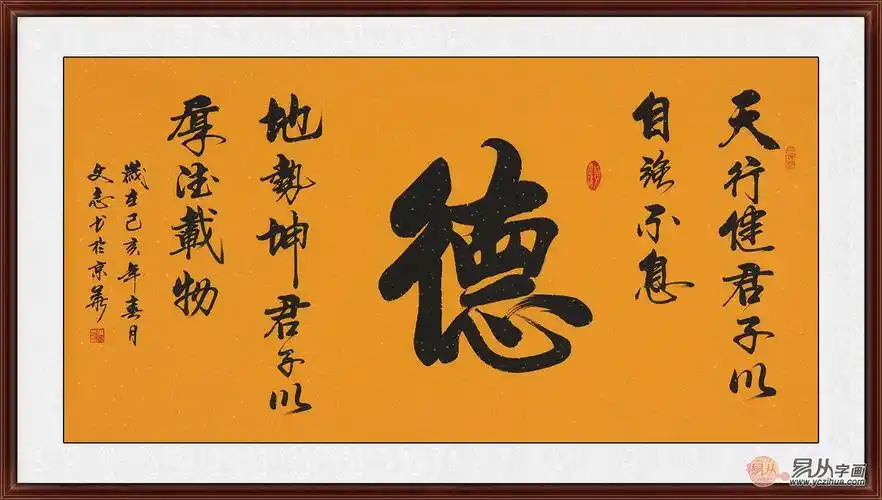 天行健君子以
自強不息
德
地勢坤君子以
厚德載物
歲在己亥年春月
文志书於京華
易从
易从字画
www.yczihua.com